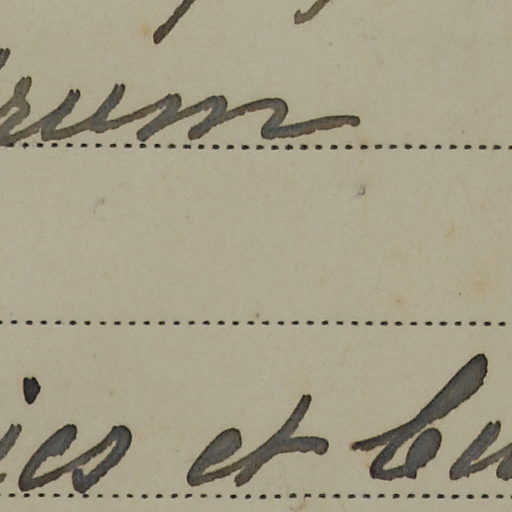 rum
ies et bu